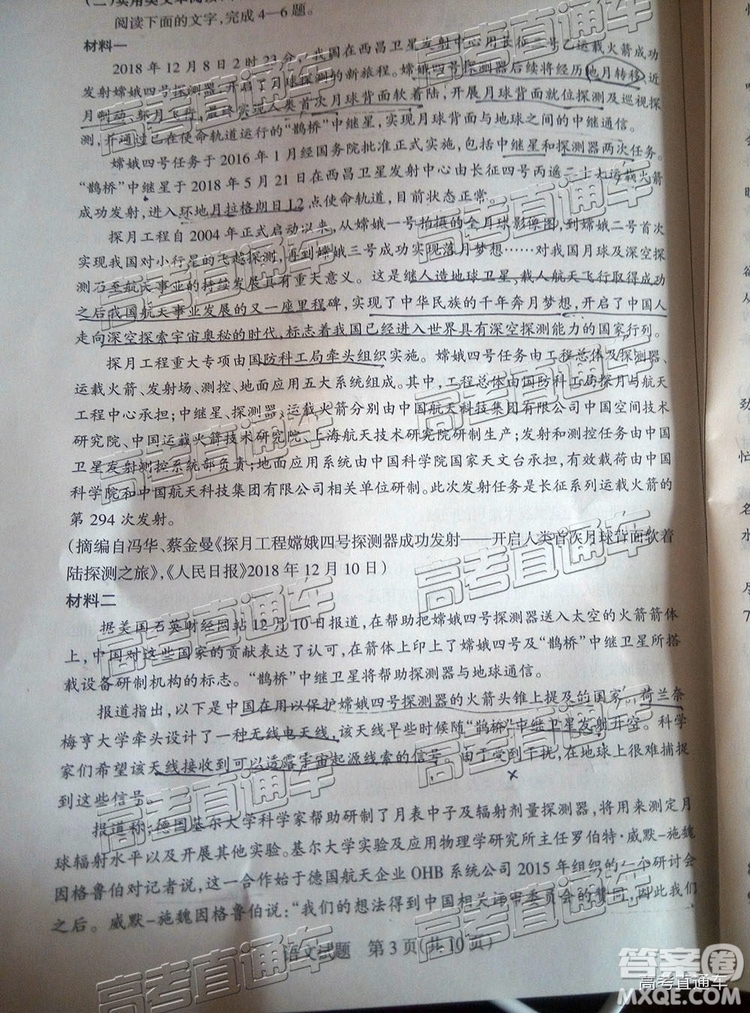 (二)实用类文本阅读
阅读下面的文字,完成4—6题。
材料一
2018年12月8日2时23分,我国在西昌卫星发射中心用长征三号乙运载火箭成功
发射嫦娥四号探测器,开启了月球探测的新旅程。嫦娥四号探测器后续将经历地月转移、近
月制动、环月飞行,最终实现人类首次月球背面软着陆,开展月球背面就位探测及巡视探
测,并通过已在使命轨道运行的“鹊桥”中继星,实现月球背面与地球之间的中继通信。
嫦娥四号任务于2016年1月经国务院批准正式实施,包括中继星和探测器两次任务。
“鹊桥”中继星于2018年5月21日在西昌卫星发射中心由长征四号丙遥二十七运载火箭
成功发射,进入环地月拉格朗日L2点使命轨道,目前状态正常。
探月工程自2004年正式启动以来,从嫦娥一号拍摄的全月球影像图,到嫦娥二号首次
实现我国对小行星的飞越探测,再到嫦娥三号成功实现落月梦想……对我国月球及深空探
测乃至航天事业的持续发展具有重大意义。这是继人造地球卫星、载人航天飞行取得成功
之后我国航天事业发展的又一座里程碑,实现了中华民族的千年奔月梦想,开启了中国人
走向深空探索宇宙奥秘的时代,标志着我国已经进入世界具有深空探测能力的国家行列。
探月工程重大专项由国防科工局牵头组织实施。嫦娥四号任务由工程总体及探测器、
运载火箭、发射场、测控、地面应用五大系统组成。其中,工程总体由国防科工局探月与航天
工程中心承担;中继星、探测器、运载火箭分别由中国航天科技集团有限公司中国空间技术
研究院、中国运载火箭技术研究院、上海航天技术研究院研制生产;发射和测控任务由中国
卫星发射测控系统部负责;地面应用系统由中国科学院国家天文台承担,有效载荷由中国
科学院和中国航天科技集团有限公司相关单位研制。此次发射任务是长征系列运载火箭的
第294次发射。
(摘编自冯华、蔡金曼《探月工程嫦娥四号探测器成功发射——开启人类首次月球背面软着
陆探测之旅》,《人民日报》2018年12月10日)
材料二
据美国石英财经网站12月10日报道,在帮助把嫦娥四号探测器送入太空的火箭箭体
上,中国对这些国家的贡献表达了认可,在箭体上印上了嫦娥四号及“鹊桥”中继卫星所搭
载设备研制机构的标志。“鹊桥”中继卫星将帮助探测器与地球通信。
报道指出,以下是中国在用以保护嫦娥四号探测器的火箭头锥上提及的国家。荷兰奈
梅亨大学牵头设计了一种无线电天线,该天线早些时候随“鹊桥”中继卫星发射升空。科学
家们希望该天线接收到可以透露宇宙起源线索的信号。由于受到干扰,在地球上很难捕捉
到这些信号。
报道称,德国基尔大学科学家帮助研制了月表中子及辐射剂量探测器,将用来测定月
球辐射水平以及开展其他实验。基尔大学实验及应用物理学研究所主任罗伯特·威默-施魏
因格鲁伯对记者说,这一合作始于德国航天企业OHB系统公司2015年组织的一个研讨会
之后。威默-施魏因格鲁伯说:“我们的想法得到中国相关评审委员会的赞同,因此我们
语文试题 第3页(共10页)
高考直通车
高考直通车
高考直通车
高考直通车
高考直通车
高考直通车
高考直通车
高考直通车
答案圈
高考直通车
MXQE.COM